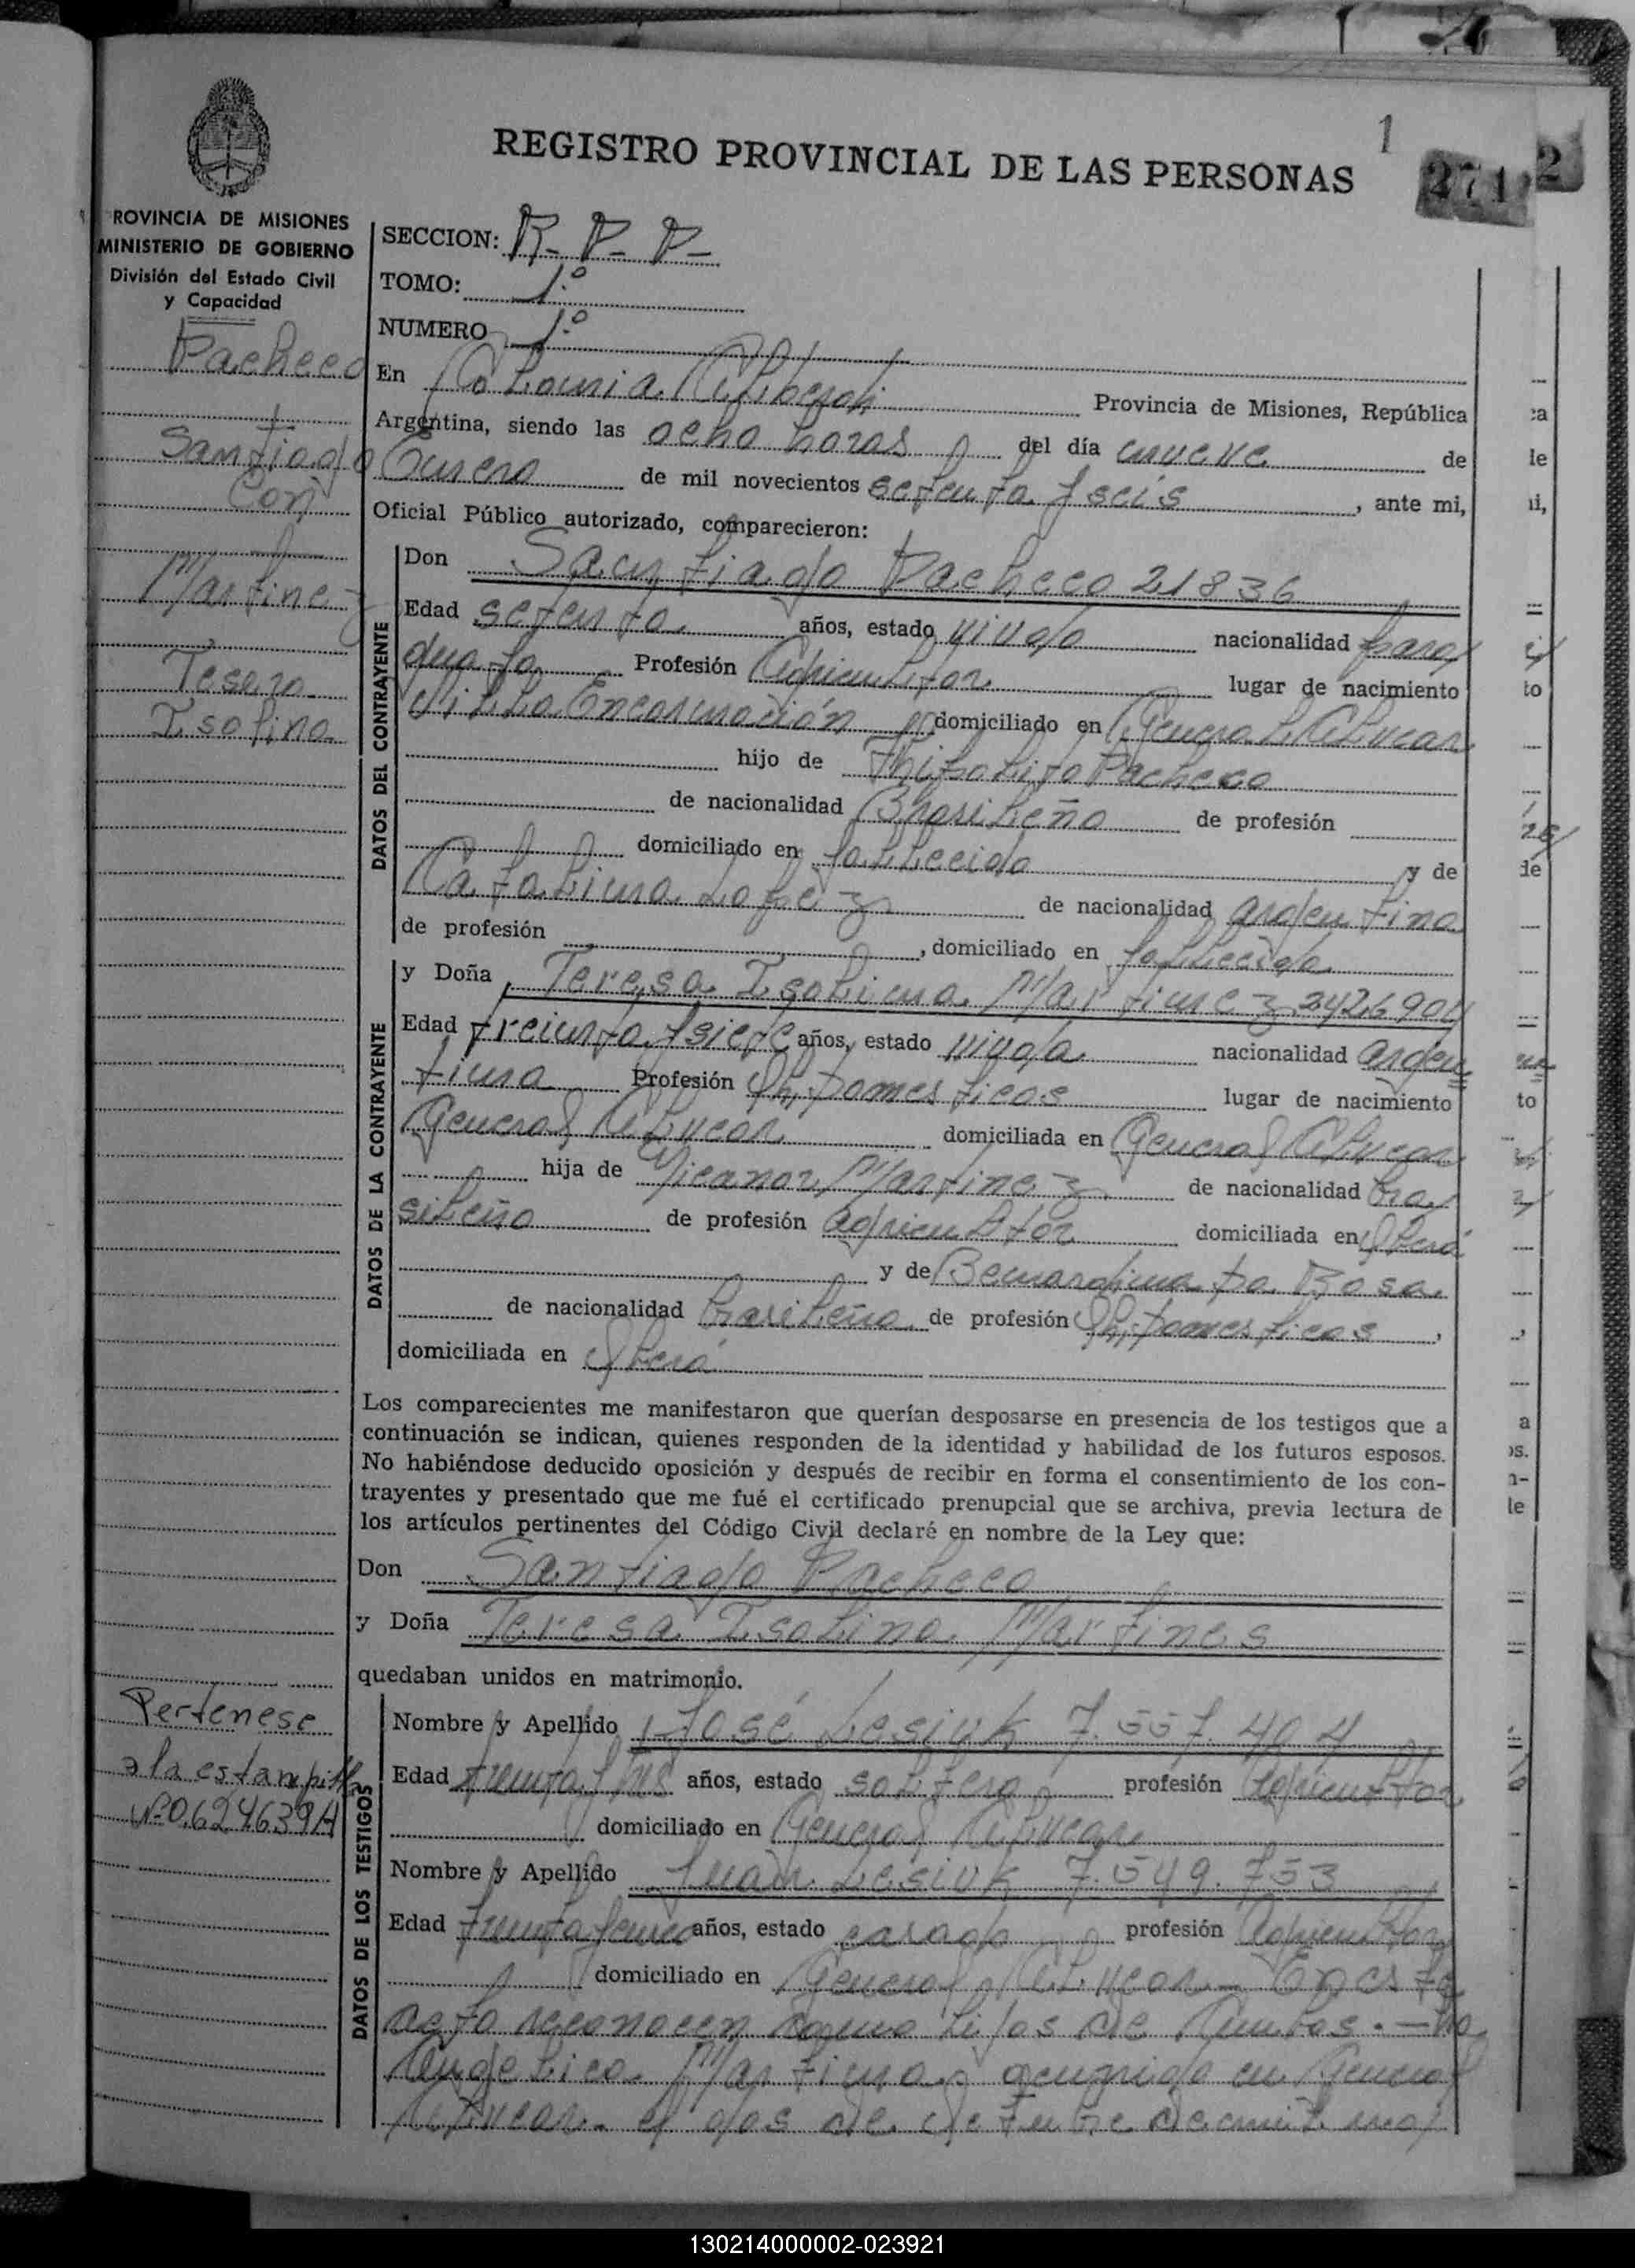 1
REGISTRO PROVINCIAL DE LAS PERSONAS
271
2
ROVINCIA DE MISIONES
MINISTERIO DE GOBIERNO
División del Estado Civil
y Capacidad
Pacheco
Santiago
Con
Martinez
Teresa
Isolina
SECCION: R. P. P.
TOMO: 1º
NUMERO 1º
En Colonia Alberdi Provincia de Misiones, República
Argentina, siendo las ocho horas del día nueve de
Enero de mil novecientos setenta y seis, ante mi,
Oficial Público autorizado, comparecieron:
DATOS DEL CONTRAYENTE
Don Santiago Pacheco 21836
Edad setenta años, estado viudo nacionalidad para/
guaya Profesión Agricultor lugar de nacimiento
Villa Encarnación domiciliado en General Alvear
hijo de Hipolito Pacheco
de nacionalidad Brasileño de profesión
domiciliado en fallecido y de
Catalina Lopez de nacionalidad argentina
de profesión , domiciliado en fallecida
DATOS DE LA CONTRAYENTE
y Doña Teresa Isolina Martinez 2426904
Edad treinta y siete años, estado viuda nacionalidad argen
tina Profesión Domesticos lugar de nacimiento
General Alvear domiciliada en General Alvear
hija de Nicanor Martinez de nacionalidad bra/
sileño de profesión agricultor domiciliada en Oberá
y de Bernardina Da Rosa
de nacionalidad brasileña de profesión Domesticos,
domiciliada en Oberá
Los comparecientes me manifestaron que querían desposarse en presencia de los testigos que a
continuación se indican, quienes responden de la identidad y habilidad de los futuros esposos.
No habiéndose deducido oposición y después de recibir en forma el consentimiento de los con-
trayentes y presentado que me fué el certificado prenupcial que se archiva, previa lectura de
los artículos pertinentes del Código Civil declaré en nombre de la Ley que:
Don Santiago Pacheco
y Doña Teresa Isolina Martines
quedaban unidos en matrimonio.
Pertenese
a la estampilla
Nº 0.624639A
DATOS DE LOS TESTIGOS
Nombre y Apellido José Lesiuk 7.557.404
Edad treinta y años, estado soltero profesión Agricultor
domiciliado en General Alvear
Nombre y Apellido Juan Lesiuk 7.549.753
Edad treinta años, estado casado profesión Agricultor
domiciliado en General Alvear - En este
acto reconocen como hijos de Ambos. -
Angelica Martina, ocurrido en General
Alvear el dos de de mil
130214000002-023921